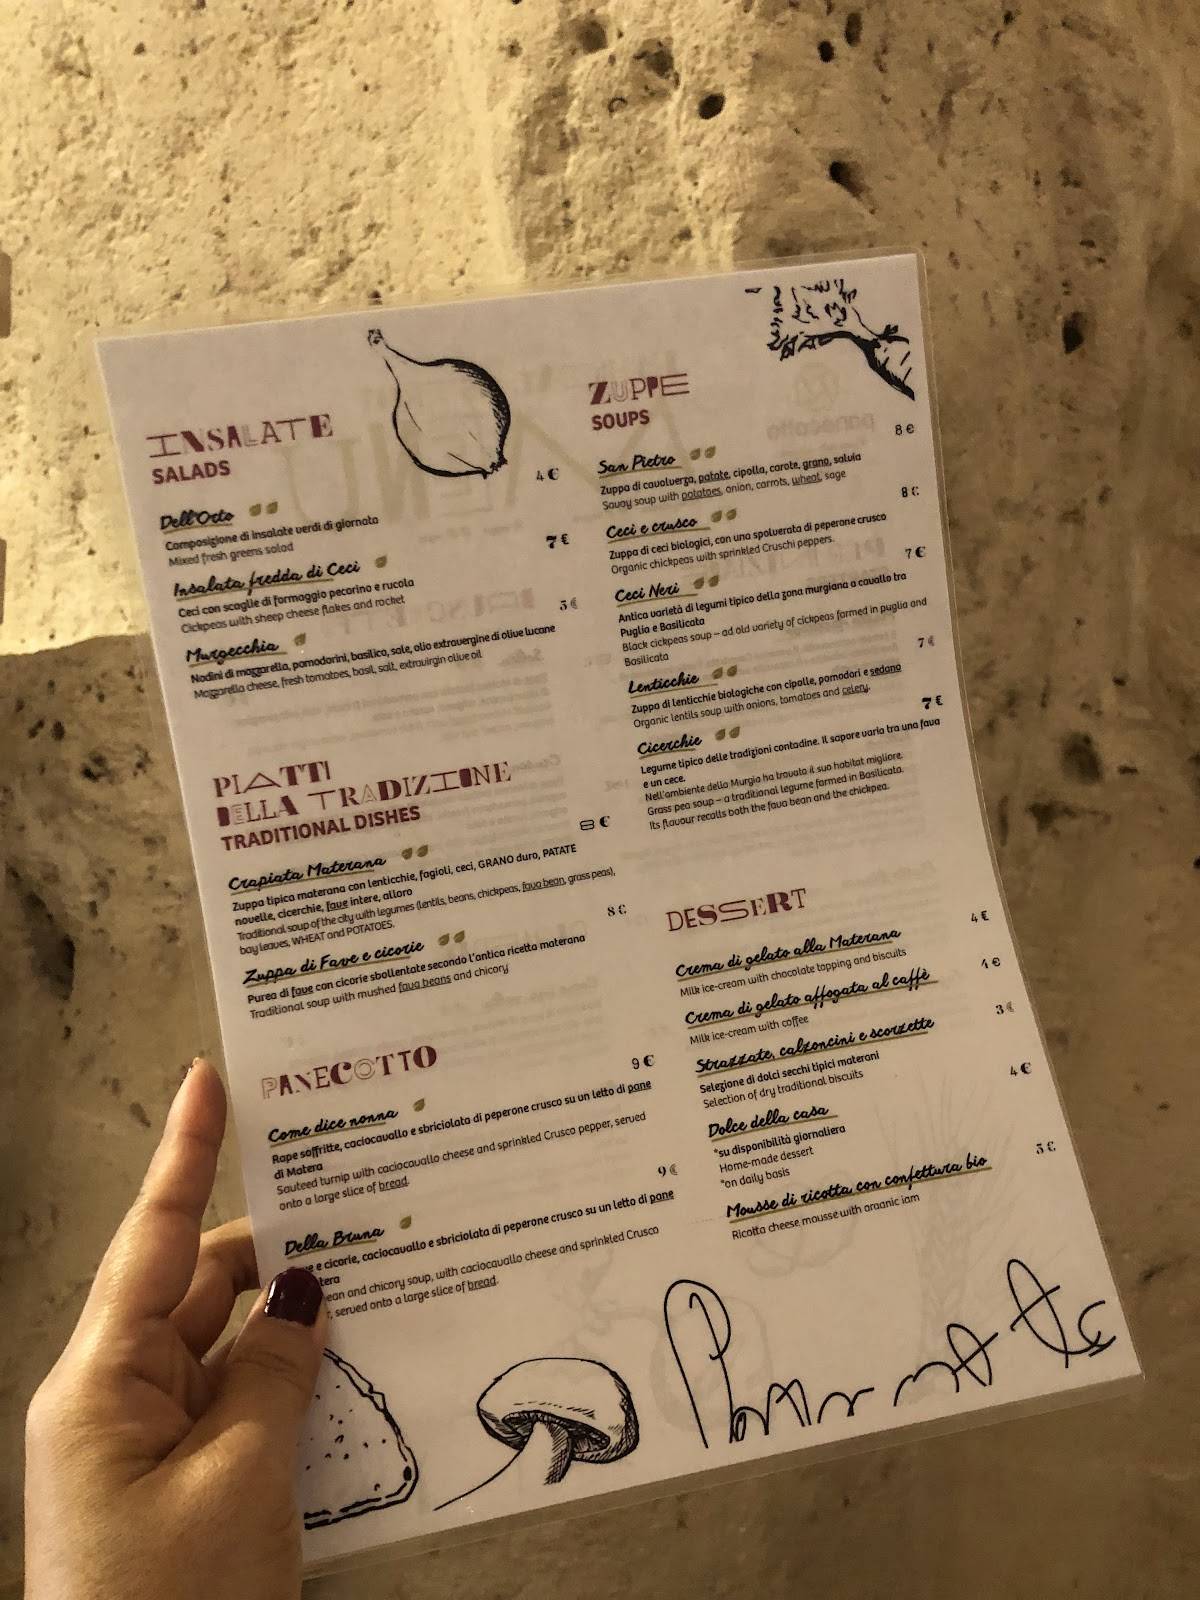 INSALATE
SALADS
4 €
Dell'Orto
Composizione di insalate verdi di giornata
Mixed fresh greens salad
7 €
Insalata fredda di Ceci
Ceci con scaglie di formaggio pecorino e rucola
Cickpeas with sheep cheese flakes and rocket
5 €
Murgecchia
Nodini di mozzarella, pomodorini, basilico, sale, olio extravergine di olive lucane
Mozzarella cheese, fresh tomatoes, basil, salt, extravirgin olive oil
PIATTI
DELLA TRADIZIONE
TRADITIONAL DISHES
8 €
Crapiata Materana
Zuppa tipica materana con lenticchie, fagioli, ceci, GRANO duro, PATATE
novelle, cicerchie, fave intere, alloro
Traditional soup of the city with legumes (lentils, beans, chickpeas, fava bean, grass peas),
bay leaves, WHEAT and POTATOES.
8 €
Zuppa di Fave e cicorie
Purea di fave con cicorie sbollentate secondo l'antica ricetta materana
Traditional soup with mushed fava beans and chicory
PANECOTTO
9 €
Come dice nonna
Rape soffritte, caciocavallo e sbriciolata di peperone crusco su un letto di pane
di Matera
Sauteed turnip with caciocavallo cheese and sprinkled Crusco pepper, served
onto a large slice of bread.
9 €
Della Bruna
e cicorie, caciocavallo e sbriciolata di peperone crusco su un letto di pane
tera
ean and chicory soup, with caciocavallo cheese and sprinkled Crusco
r, served onto a large slice of bread.
ZUPPE
SOUPS
8 €
San Pietro
Zuppa di cavolverza, patate, cipolla, carote, grano, salvia
Savoy soup with potatoes, onion, carrots, wheat, sage
8 €
Ceci e crusco
Zuppa di ceci biologici, con una spolverata di peperone crusco
Organic chickpeas with sprinkled Cruschi peppers.
7 €
Ceci Neri
Antica varietà di legumi tipico della zona murgiana a cavallo tra
Puglia e Basilicata
Black cickpeas soup – ad old variety of cickpeas farmed in puglia and
Basilicata
7 €
Lenticchie
Zuppa di lenticchie biologiche con cipolle, pomodori e sedano
Organic lentils soup with onions, tomatoes and celery.
7 €
Cicerchie
Legume tipico delle tradizioni contadine. Il sapore varia tra una fava
e un cece.
Nell'ambiente della Murgia ha trovato il suo habitat migliore.
Grass pea soup – a traditional legume farmed in Basilicata.
Its flavour recalls both the fava bean and the chickpea.
DESSERT
4 €
Crema di gelato alla Materana
Milk ice-cream with chocolate topping and biscuits
4 €
Crema di gelato affogata al caffè
Milk ice-cream with coffee
3 €
Strazzate, calzoncini e scorzette
Selezione di dolci secchi tipici materani
Selection of dry traditional biscuits
4 €
Dolce della casa
*su disponibilità giornaliera
Home-made dessert
*on daily basis
5 €
Mousse di ricotta con confettura bio
Ricotta cheese mousse with organic jam